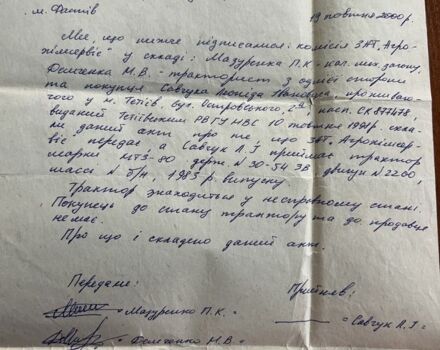 м. Фастів 19 жовтня 2000р.
Ми, що нижче підписалися: комісія ЗАТ "Агро-
хімсервіс" у складі: Мазуренка П.К - нал. мех. загону,
Демченка М.В. - тракториста з однієї сторони
та покупця Савчука Леоніда Івановича, прожива-
чого у м. Тетіїв, вул. Островського, пасп. СК 877478,
виданий Тетіївським РВГУ МВС 10 жовтня 1997р. скла-
ли даний акт про те що ЗАТ "Агрохімсер-
віс передає, а Савчук Л.І приймає трактор
марки МТЗ-80 держ. N 30-54 ЗВ двигун N 2260,
шассі N б/н, 1985 р. випуску.
Трактор знаходиться у несправному стані.
Покупець до стану трактору та до продавця
не має.
Про що і складено даний акт.
Передано: Прийняв:
Мазуренко П.К. Савчук Л.І
Демченко М.В.